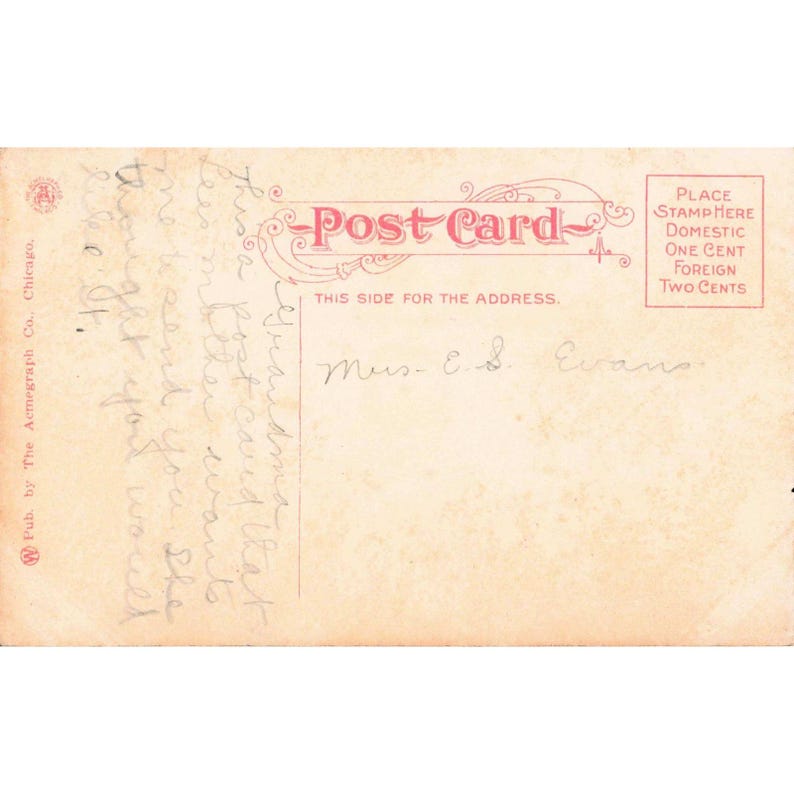 Post Card
THIS SIDE FOR THE ADDRESS.
PLACE
STAMP HERE
DOMESTIC
ONE CENT
FOREIGN
TWO CENTS
Mrs. E. S. Evans
Grandma
this a post card that
Lees mother wants
me to send you. She
thought you would
like it.
Pub. by The Acmegraph Co., Chicago.